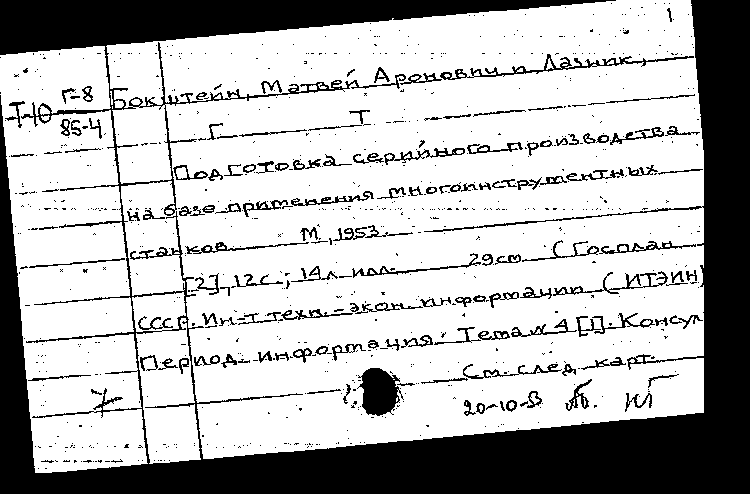 1
Г-8
Т-10
85-4
Бокштейн, Матвей Аронович и Лачник,
Г Т
Подготовка серийного производства
на базе применения многоинструментных
станков М, 1953.
[2], 12 с.; 14 л. илл. 29 см (Госплан
СССР. Ин-т техн.-экон. информации (ИТЭИН)
Период. информация. Тема № 4 [1]. Консул
См. след. карт.
20-10-53